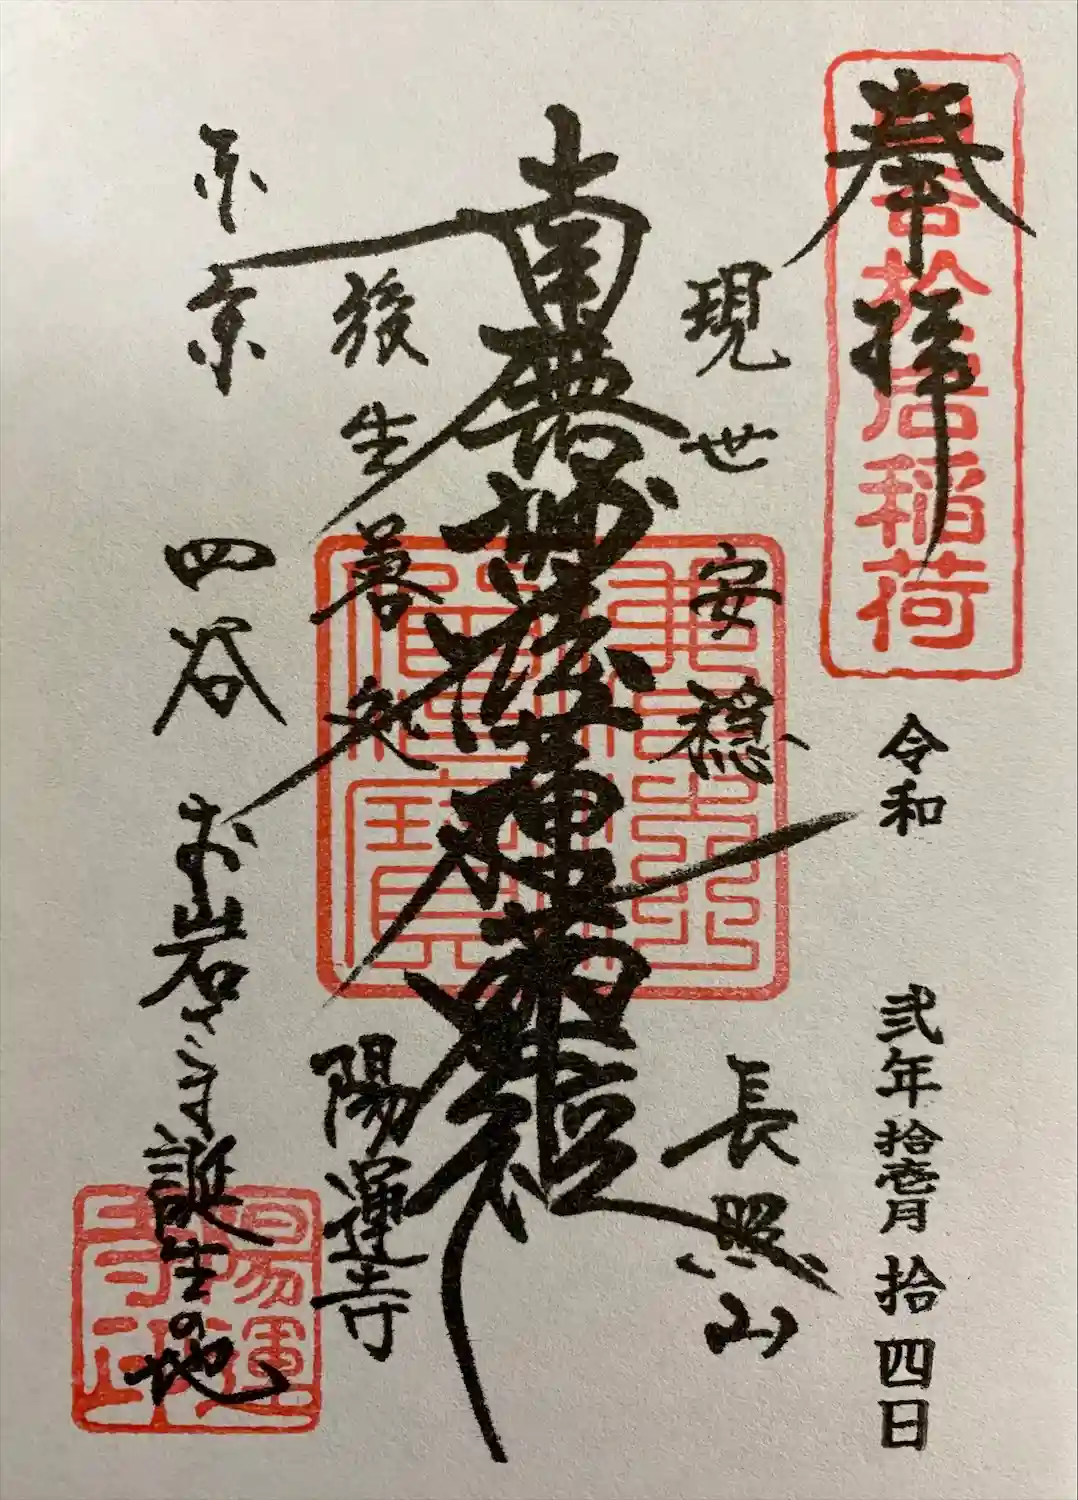 奉拝
稲荷
令和 弐年拾壱月拾四日
現世安穏 長照山
南無妙法蓮華経
後生善処 陽運寺
東京 四谷 お岩さま誕生の地
陽運寺印